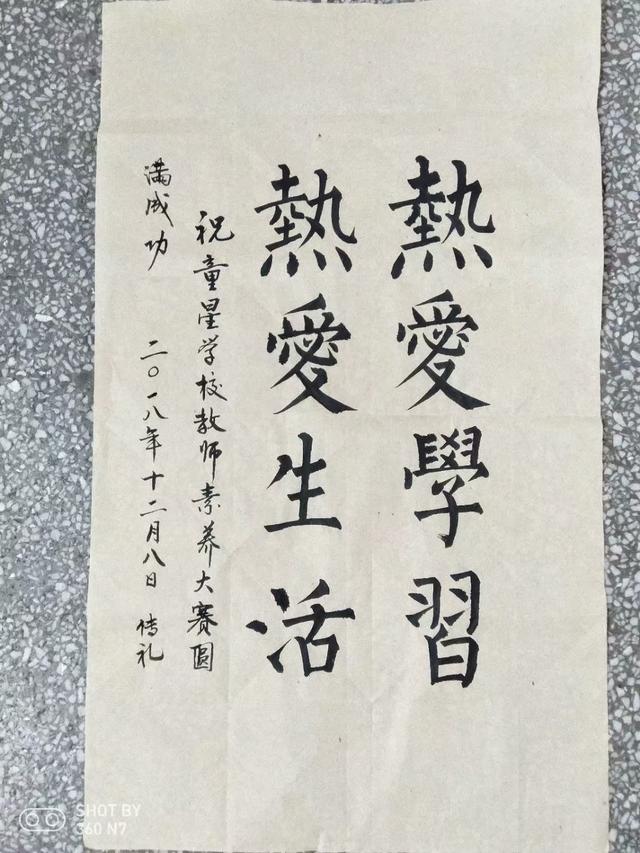 熱愛學習
熱愛生活
祝童星学校教师素养大赛圆
满成功 二〇一八年十二月八日 传礼
SHOT BY
360 N7